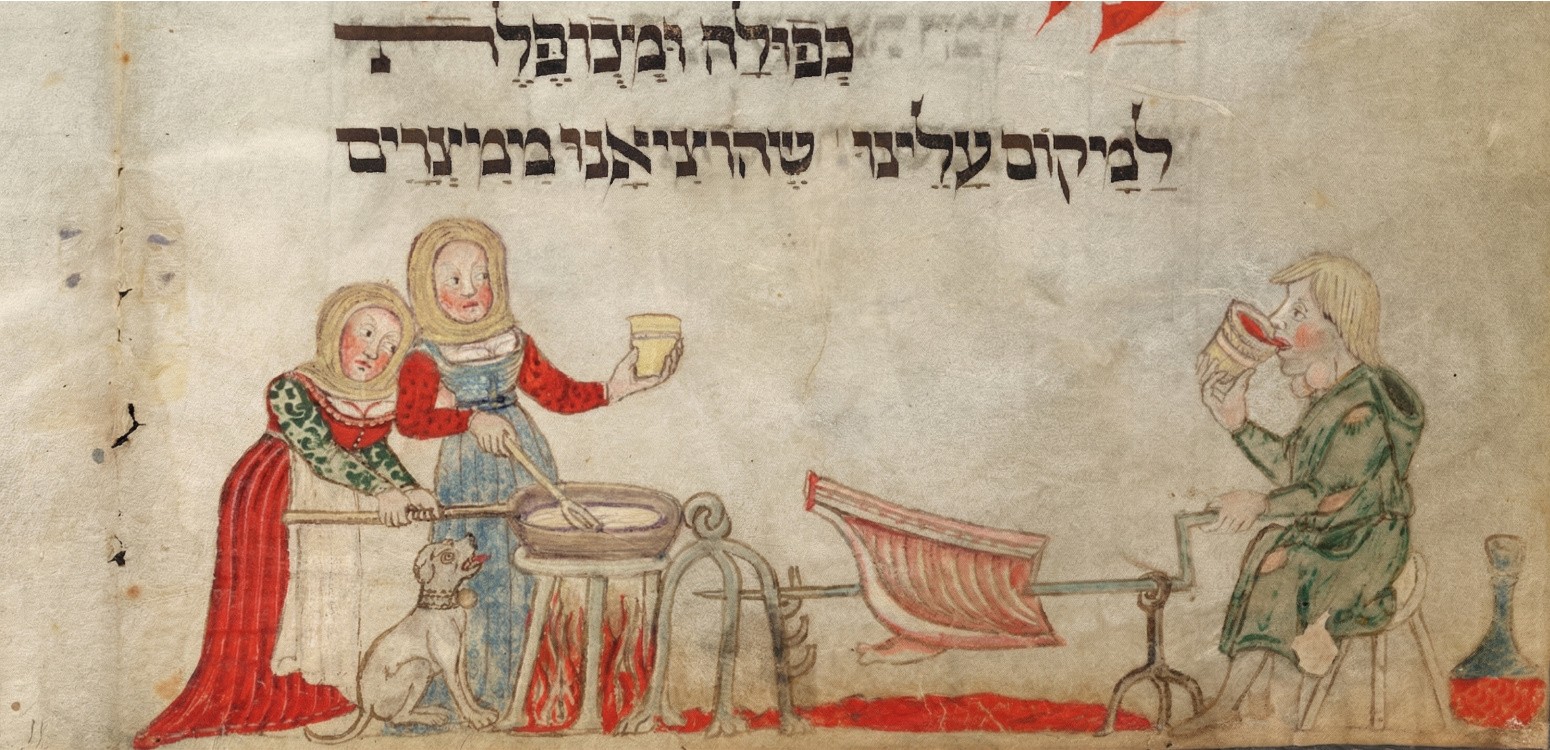 כְפוּלָה וּמְכוּפֶּלֶת
לַמָקוֹם עָלֵינוּ שֶהוֹצִיאָנוּ מִמִצְרַיִם